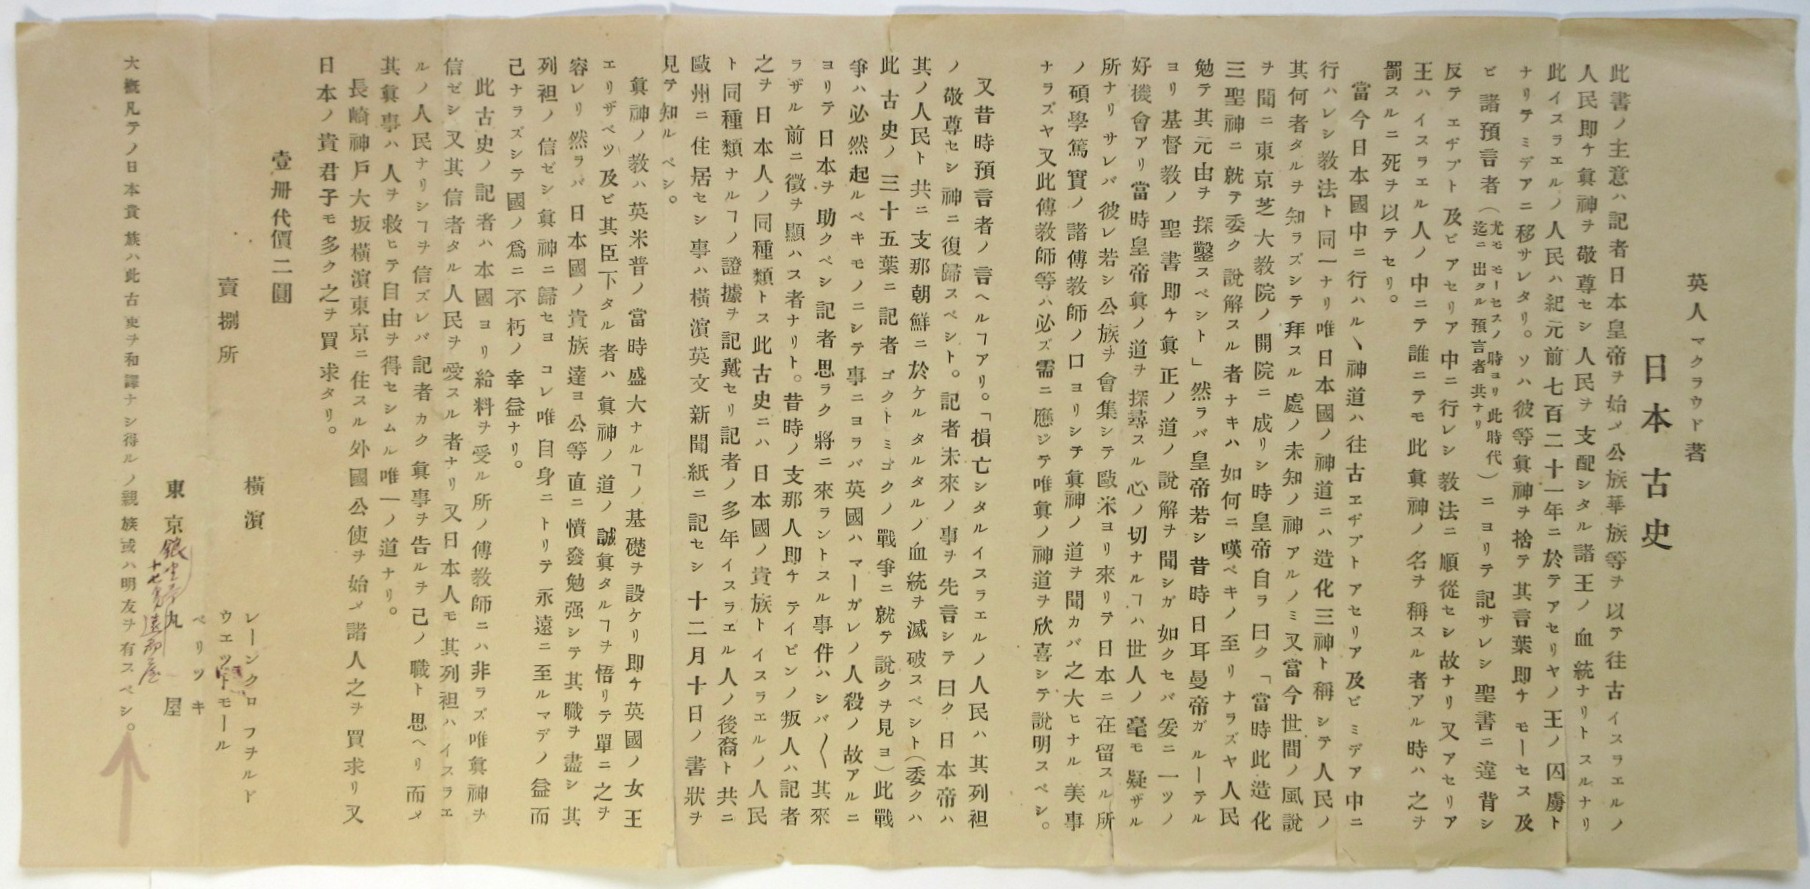 英人マクラウド著
日本古史
此書ノ主意ハ記者日本皇帝ヲ始メ公族華族等ヲ以テ往古イスラエルノ
人民即チ眞神ヲ敬尊セシ人民ヲ支配シタル諸王ノ血統ナリトスルナリ
此イスラエルノ人民ハ紀元前七百二十一年ニ於テアセリヤノ王ノ囚虜ト
ナリテミデアニ移サレタリ。ソハ彼等眞神ヲ捨テ其言葉即チモーセス及
ビ諸預言者(尤モモーセスノ時ヨリ此時代迄ニ出タル預言者共ナリ)ニヨリテ記サレシ聖書ニ違背シ
反テエヂプト及ビアセリア中ニ行レシ教法ニ順從セシ故ナリ又アセリア
王ハイスラエル人ノ中ニテ誰ニテモ此眞神ノ名ヲ稱スル者アル時ハ之ヲ
罰スルニ死ヲ以テセリ。
當今日本國中ニ行ハルヽ神道ハ往古エヂプトアセリア及ビミデア中ニ
行ハレシ教法ト同一ナリ唯日本國ノ神道ニハ造化三神ト稱シテ人民ノ
其何者タルヲ知ラズシテ拜スル處ノ未知ノ神アルノミ又當今世間ノ風説
ヲ聞ニ東京芝大教院ノ開院ニ成リシ時皇帝自ラ曰ク「當時此造化
三聖神ニ就テ委ク説解スル者ナキハ如何ニ嘆ベキノ至リナラズヤ人民
勉テ其元由ヲ探鑿スベシト」然ラバ皇帝若シ昔時日耳曼帝ガルーテル
ヨリ基督教ノ聖書即チ眞正ノ道ノ説解ヲ聞シガ如クセバ爰ニ一ツノ
好機會アリ當時皇帝眞ノ道ヲ探尋スル心ノ切ナルヿハ世人ノ毫モ疑ザル
所ナリサレバ彼レ若シ公族ヲ會集シテ歐米ヨリ來リテ日本ニ在留スル所
ノ碩學篤實ノ諸傳教師ノ口ヨリシテ眞神ノ道ヲ聞カバ之大ヒナル美事
ナラズヤ又此傳教師等ハ必ズ需ニ應ジテ唯眞ノ神道ヲ欣喜シテ説明スベシ。
又昔時預言者ノ言ヘルヿアリ。「損亡シタルイスラエルノ人民ハ其列祖
ノ敬尊セシ神ニ復歸スベシト。記者未來ノ事ヲ先言シテ曰ク日本帝ハ
其ノ人民ト共ニ支那朝鮮ニ於ケルタルタルノ血統ヲ滅破スベシト(委クハ
此古史ノ三十五葉ニ記者ゴクトミゴクノ戰爭ニ就テ説クヲ見ヨ)此戰
爭ハ必然起ルベキモノニシテ事ニヨラバ英國ハマーガレノ人殺ノ故アルニ
ヨリテ日本ヲ助クベシ記者思ラク將ニ來ラントスル事件ハシバ〱其來
ラザル前ニ徵ヲ顯ハス者ナリト。昔時ノ支那人即チテイビンノ叛人ハ記者
之ヲ日本人ノ同種類トス此古史ニハ日本國ノ貴族トイスラエルノ人民
ト同種類ナルヿノ證據ヲ記載セリ記者ノ多年イスラエル人ノ後裔ト共ニ
歐州ニ住居セシ事ハ横濱英文新聞紙ニ記セシ十二月十日ノ書狀ヲ
見テ知ルベシ。
眞神ノ教ハ英米普ノ當時盛大ナルヿノ基礎ヲ設ケリ即チ英國ノ女王
エリザベツ及ビ其臣下タル者ハ眞神ノ道ノ誠眞タルヿヲ悟リテ單ニ之ヲ
容レリ然ラバ日本國ノ貴族達ヨ公等直ニ憤發勉强シテ其職ヲ盡シ其
列祖ノ信ゼシ眞神ニ歸セヨコレ唯自身ニトリテ永遠ニ至ルマデノ益而
己ナラズシテ國ノ爲ニ不朽ノ幸益ナリ。
此古史ノ記者ハ本國ヨリ給料ヲ受ル所ノ傳教師ニハ非ラズ唯眞神ヲ
信ゼシ又其信者タル人民ヲ愛スル者ナリ又日本人モ其列祖ハイスラエ
ルノ人民ナリシヿヲ信ズレバ記者カク眞事ヲ告ルヲ己ノ職ト思ヘリ而メ
其眞事ハ人ヲ救ヒテ自由ヲ得セシムル唯一ノ道ナリ。
長崎神戸大坂横濱東京ニ住スル外國公使ヲ始メ諸人之ヲ買求リ又
日本ノ貴君子モ多ク之ヲ買求タリ。
壹册代價二圓
賣捌所
横濱 レーンクロフヲルド
ウエツモール
ベリツキ
東京 銀坐 丸屋
大概凡テノ日本貴族ハ此古史ヲ和譯ナシ得ルノ親族或ハ朋友ヲ有スベシ。